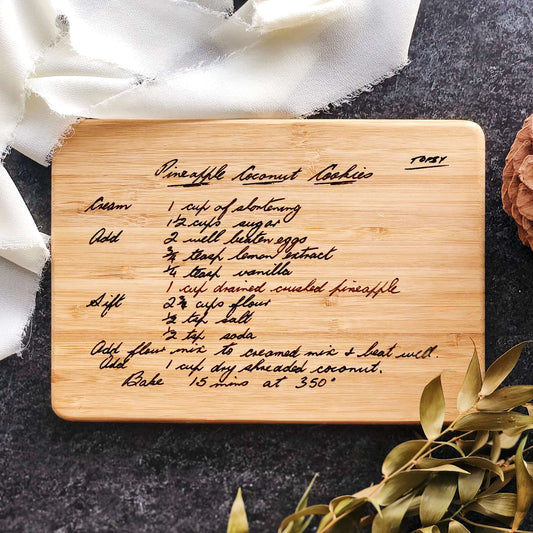 Pineapple Coconut Cookies
TOPSY
Cream 1 cup of shortening
1 1/2 cups sugar
Add 2 well beaten eggs
3/4 teasp lemon extract
1/4 teasp vanilla
1 cup drained crushed pineapple
Sift 2 3/4 cups flour
1/2 tsp salt
1/2 tsp soda
Add flour mix to creamed mix & beat well.
Add 1 cup dry shredded coconut.
Bake 15 mins at 350°